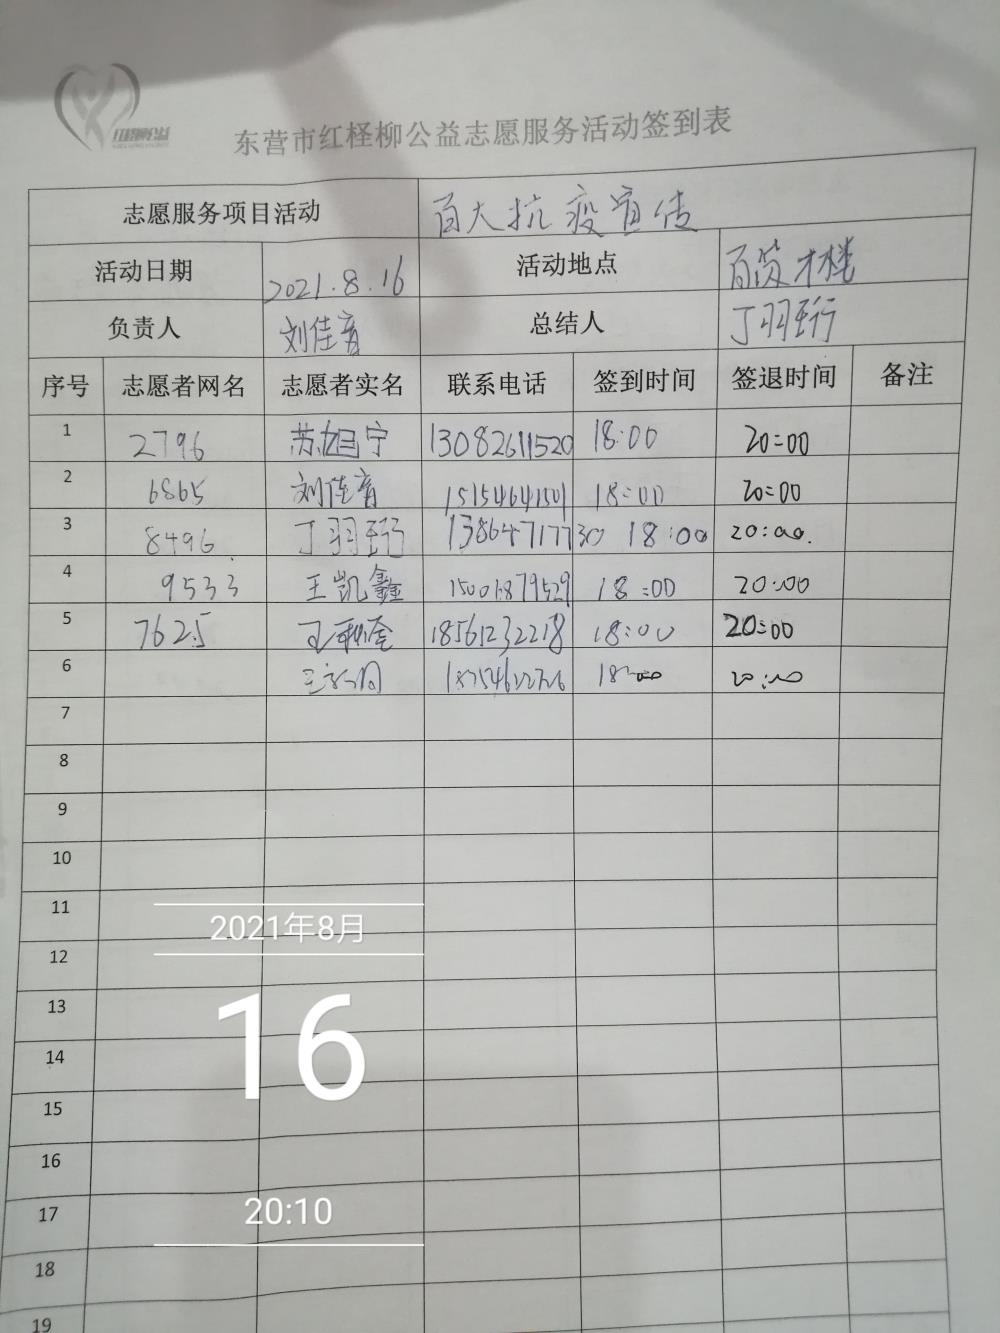 东营市红柽柳公益志愿服务活动签到表
志愿服务项目活动 百大抗疫宣传
活动日期 2021.8.16 活动地点 百货大楼
负责人 刘佳音 总结人 丁羽珩
序号 志愿者网名 志愿者实名 联系电话 签到时间 签退时间 备注
1 2796 苏旭宁 13082611520 18:00 20:00
2 6865 刘佳音 18:00 20:00
3 8496 丁羽珩 13864717730 18:00 20:00.
4 9533 王凯鑫 18:00 20:00
5 7625 18561232218 18:00 20:00
6
7
8
9
10
11
2021年8月
12
13
16
14
15
16
17
20:10
18
19